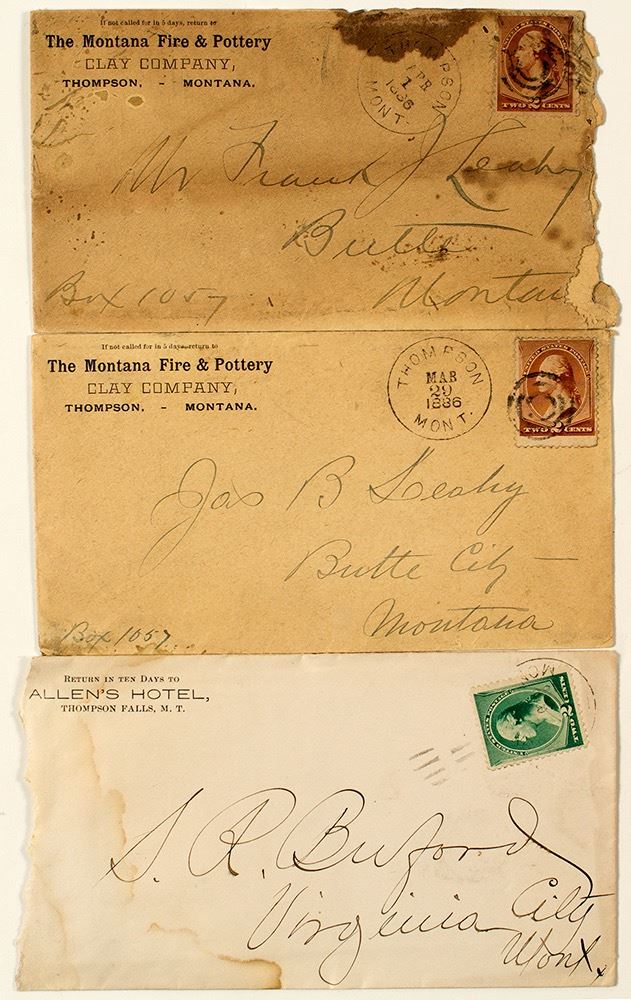 If not called for in 5 days, return to
The Montana Fire & Pottery
CLAY COMPANY,
THOMPSON, - MONTANA.
THOMPSON
APR
1
1886
MONT.
TWO 2 CENTS
Mr Frank J Leahy
Butte
Montana
Box 1057
If not called for in 5 days return to
The Montana Fire & Pottery
CLAY COMPANY,
THOMPSON, - MONTANA.
THOMPSON
MAR
29
1886
MONT.
UNITED STATES POSTAGE
TWO 2 CENTS
Jas B Leahy
Butte City
Montana
Box 1057
RETURN IN TEN DAYS TO
ALLEN'S HOTEL,
THOMPSON FALLS, M. T.
MON
TWO 2 CENTS
S. R. Buford
Virginia City
Mont.